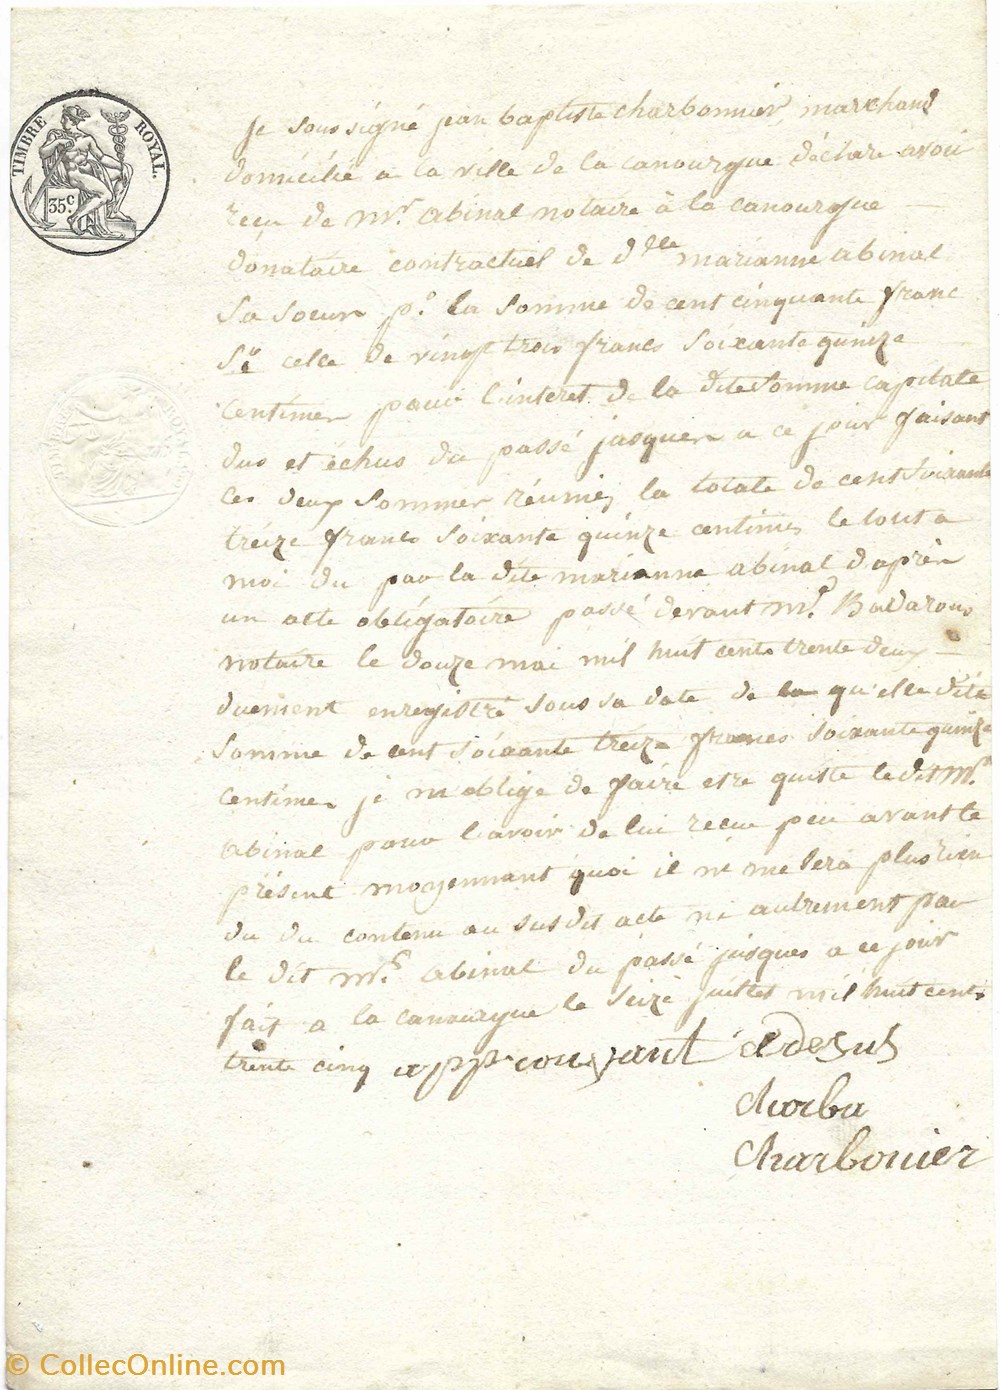 TIMBRE ROYAL.
35 c.
je soussigné jean baptiste charbonnier, marchand
domicilié a la ville de la canourgue déclare avoir
recu de mr. abinal notaire à la canourgue
donataire contractuel de dlle marianne abinal
sa soeur po. la somme de cent cinquante franc
celle de vingt trois francs soixante quinze
centimes pour l'interet de la dite somme capitale
dus et échus du passé jusques a ce jour faisant
ces deux sommes réunies la totale de cent soixante
treize francs soixante quinze centimes le tout a
moi du par la dite marianne abinal d'après
un acte obligatoire passé devant me. Badaroux
notaire le douze mai mil huit cents trente deux
duement enregistré sous sa date de la qu'elle dite
somme de cent soixante treize francs soixante quinze
centimes je m'oblige de faire etre quitte le dit mr.
abinal pour l'avoir de lui recue peu avant le
présent moyennant quoi il ne me sera plus rien
du du contenu au susdit acte ni autrement par
le dit mr. abinal du passé jusques a ce jour
fait a la canourgue le seize juillet mil huit cents
trente cinq approuvant edesus
charbu
charbonier
© CollecOnline.com